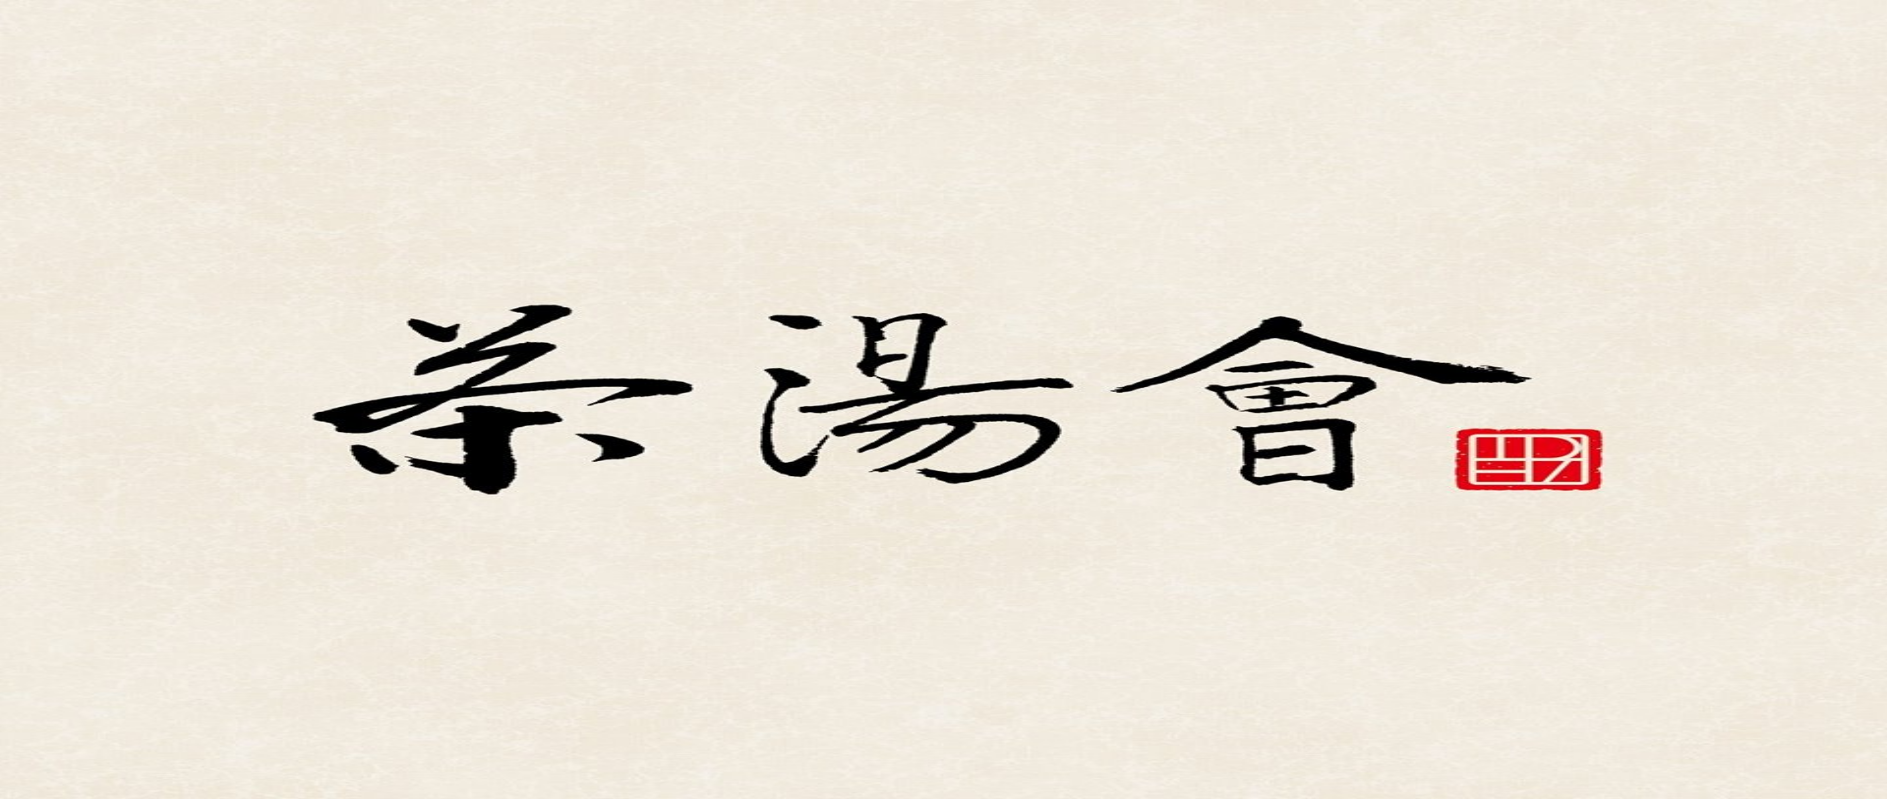 茶湯會